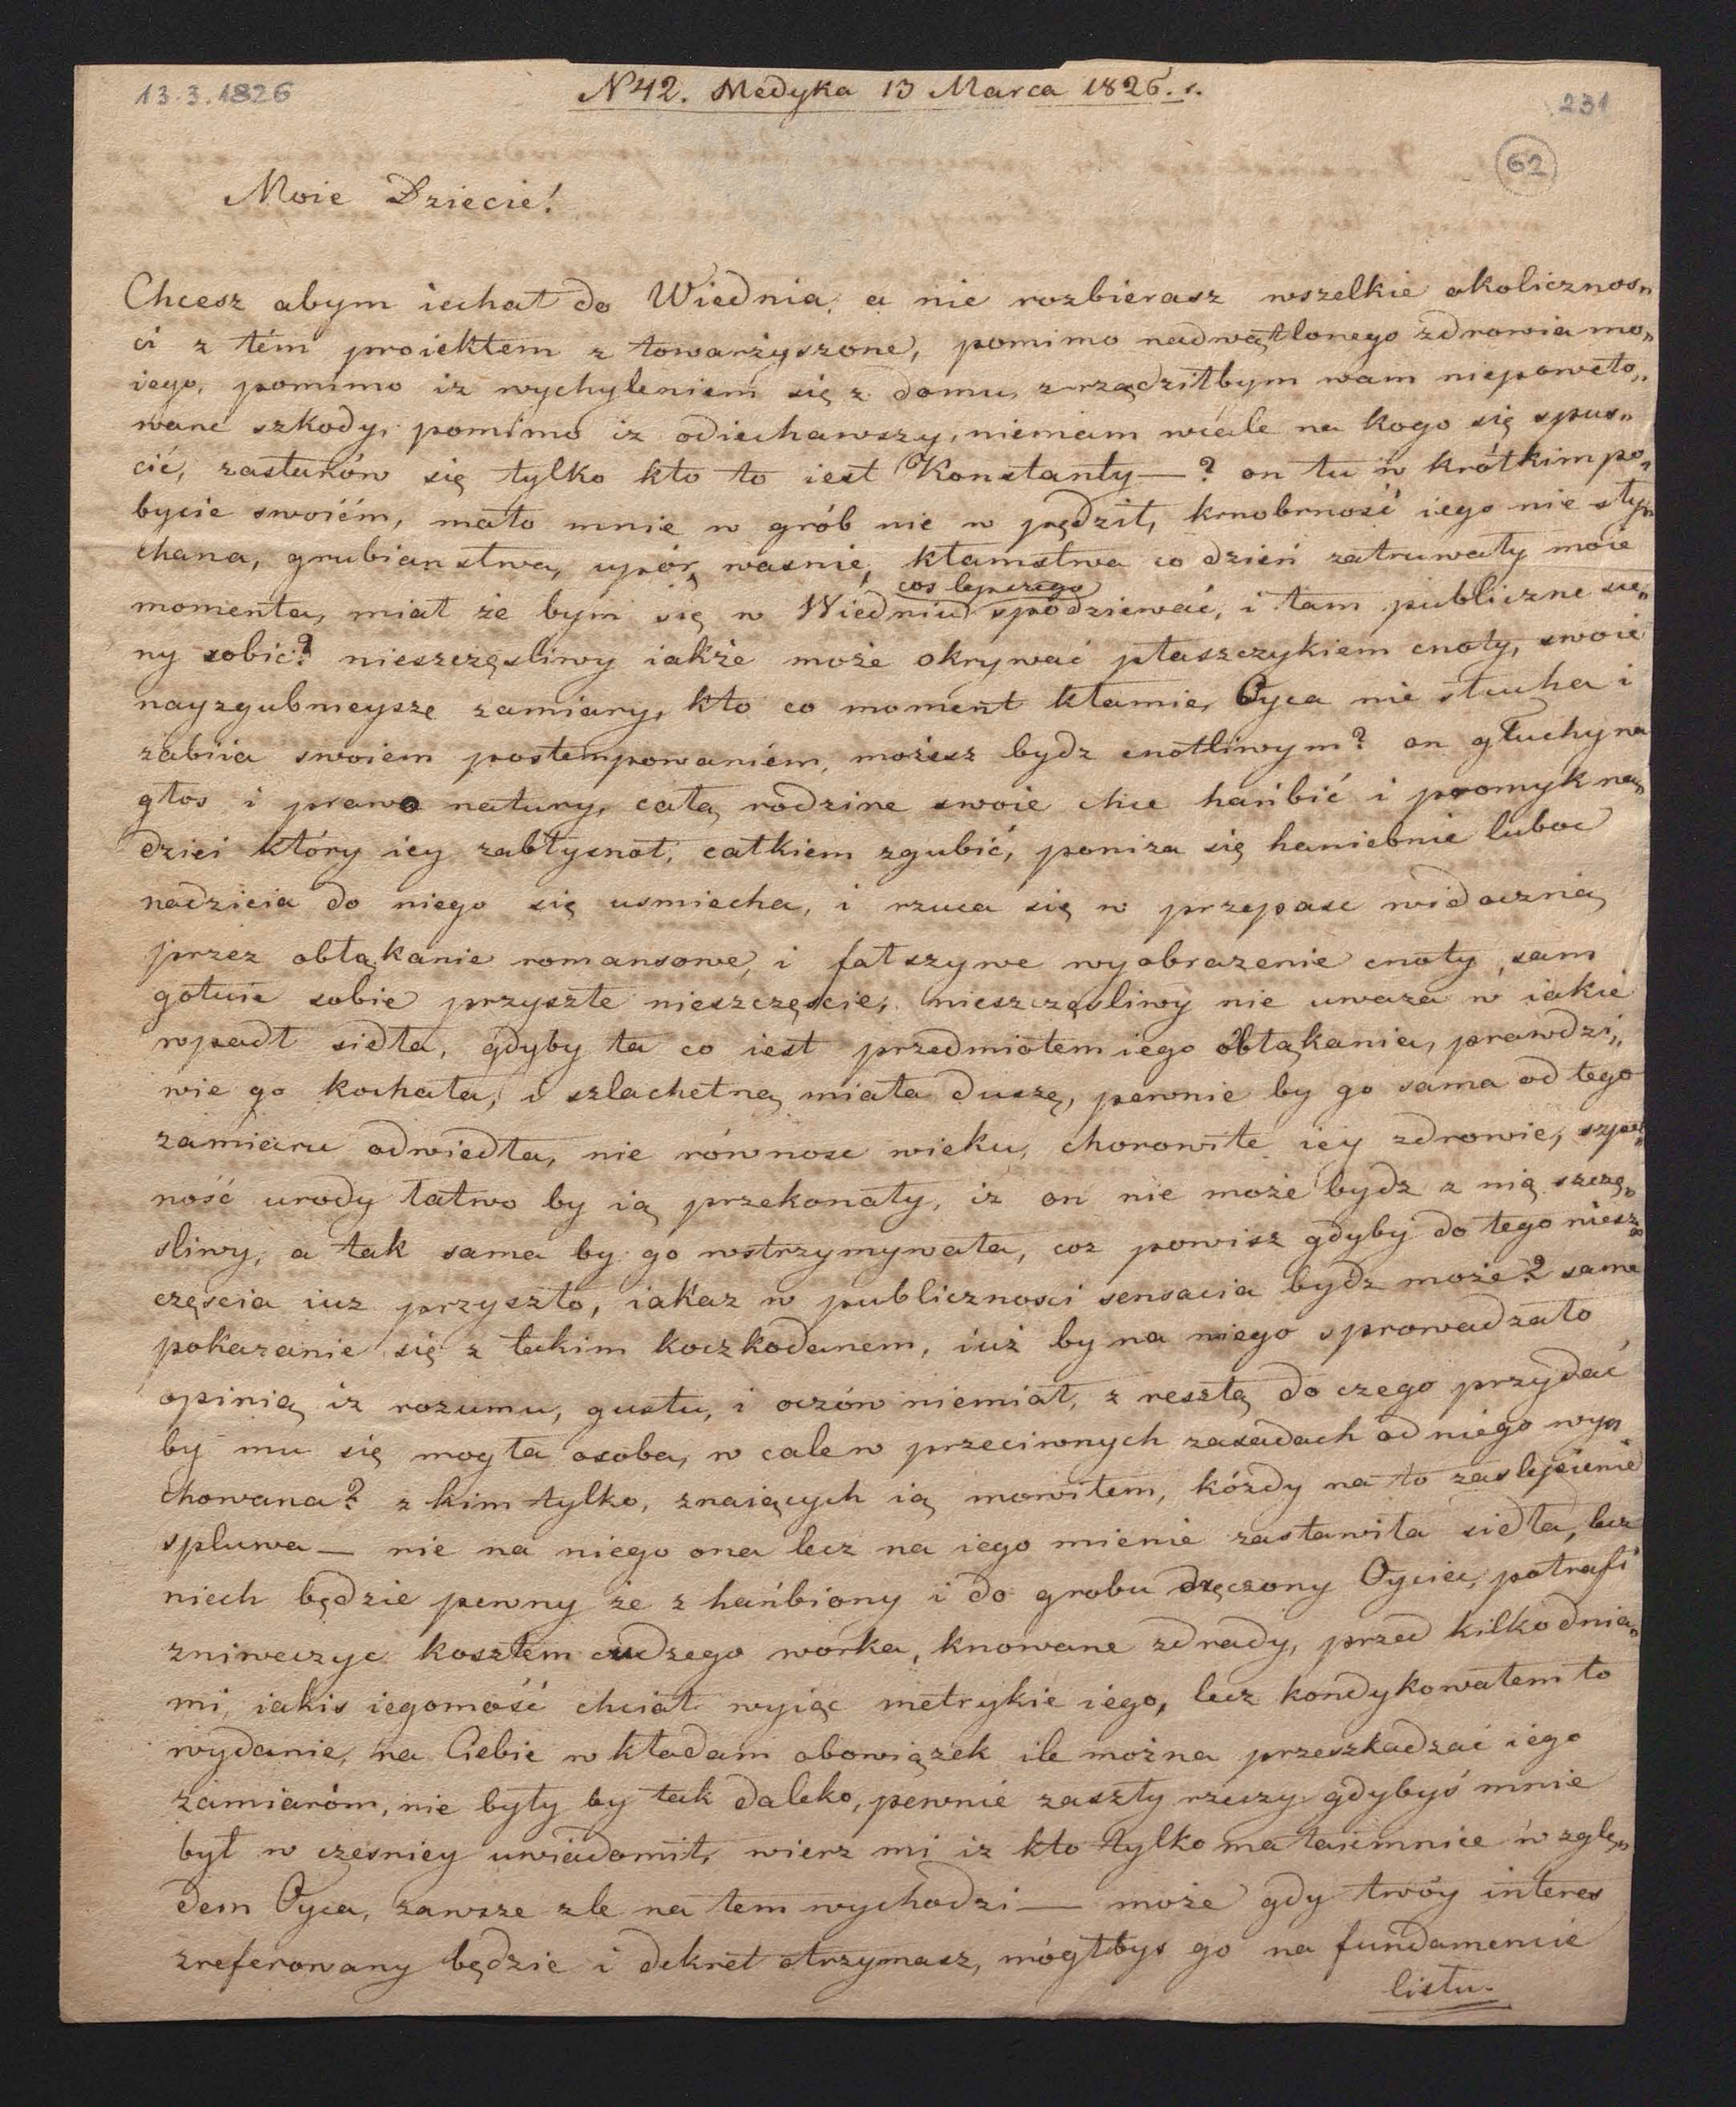 13.3.1826
N 42. Medyka 13 Marca 1826. r.
231
62
Moie Dziecie!
Chcesz abym iechał do Wiednia, a nie rozbierasz wszelkie okolicznos„
ci z tém proiektem z towarżyszone, pomimo nadwątlonego zdrowia mo„
iego, pomimo iz wychyleniem się z domu, zrządziłbym wam niepoweto„
wane szkody, pomimo iz odiechawszy, niemam wcale na kogo się spus„
cić, zastanów się tylko kto to iest Konstanty — ? on tu w krótkim po„
bycie swoiém, mało mnie w grób nie w pędził, krnobrność iego nie sły„
chana, grubianstwa, upór, wasnie, kłamstwa co dzień zatruwały moie
cos lepszego
momenta, miał że bym się w Wiedniu spodziewać, i tam publiczne sce„
ny robić? nieszczęsliwy iakże może okrywać płaszczykiem cnoty, swoie
nayzgubnieysze zamiary, kto co moment kłamie, Oyca nie słucha i
zabiia swoiem postempowaniem, możesz bydz cnotliwym? on głuchy na
głos i prawo natury, całą rodzine swoie chce hańbić i promyk na„
dziei który iey zabłysnoł, całkiem zgubić, poniza się haniebnie luboc
nadzieia do niego się usmiecha, i rzuca się w przepasc widoczną
przez obłąkanie romansowe, i fałszywe wyobrazenie cnoty, sam
gotuie sobie przyszłe nieszczęscie, nieszczęsliwy nie uwaza w iakie
wpadł sidła, gdyby ta co iest przedmiotem iego obłąkania, prawdzi„
wie go kochała, i szlachetną miała duszę, pewnie by go sama od tego
zamiaru odwiedła, nie równosc wieku, chorowite iey zdrowie, szpet„
ność urody łatwo by ią przekonały, iz on nie może bydz z nią szczę„
sliwy, a tak sama by go wstrzymywała, coz powisz gdyby do tego niesz„
częscia iuz przyszło, iakaz w publicznosci sensacia bydz może? same
pokazanie się z takim koczkodanem, iuż by na niego sprowadzało
opinią iz rozumu, gustu, i oczów niemiał, z resztą do czego przydać
by mu się mogła osoba, w cale w przeciwnych zasadach od niego wy„
chowana? z kim tylko, znaiących ią mowiłem, kózdy na to zaslepienie
spluwa — nie na niego ona lecz na iego mienie zastawiła sidła, lecz
niech będzie pewny że z hańbiony i do grobu dręczony Oyciec, potrafi
zniweczyc kosztem cudzego worka, knowane zdrady, przed kilko dnia„
mi, iakis iegomość chciał wyiąc metrykie iego, lecz kondykowałem to
wydanie, na Ciebie w kładam obowiązek ile można przeszkadzać iego
zamiaróm, nie były by tak daleko, pewnie zaszły rzeczy gdybyś mnie
był w czesniey uwiadomił, wierz mi iz kto tylko ma taiemnice w zglę„
dem Oyca, zawsze zle na tem wychodzi — może gdy twóy interes
zreferowany będzie i dekret otrzymasz, mógłbys go na fundamencie
listu.